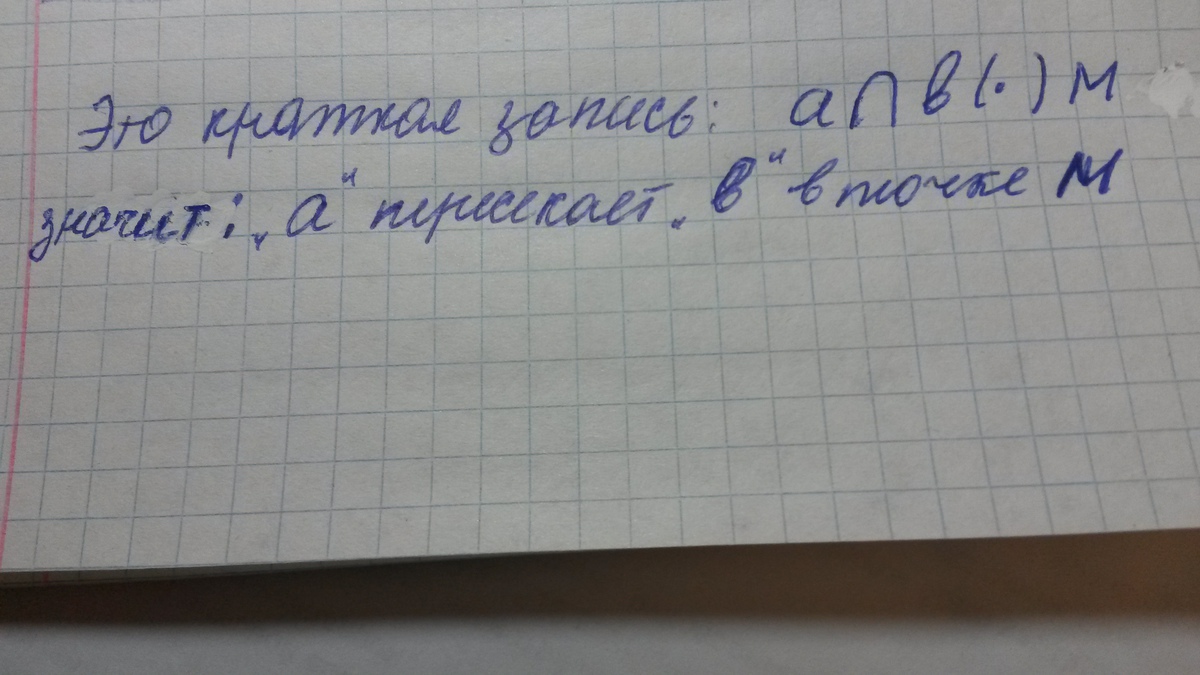 Это краткая запись: a∩b(·)M
значит: „a“ пересекает „b“ в точке M